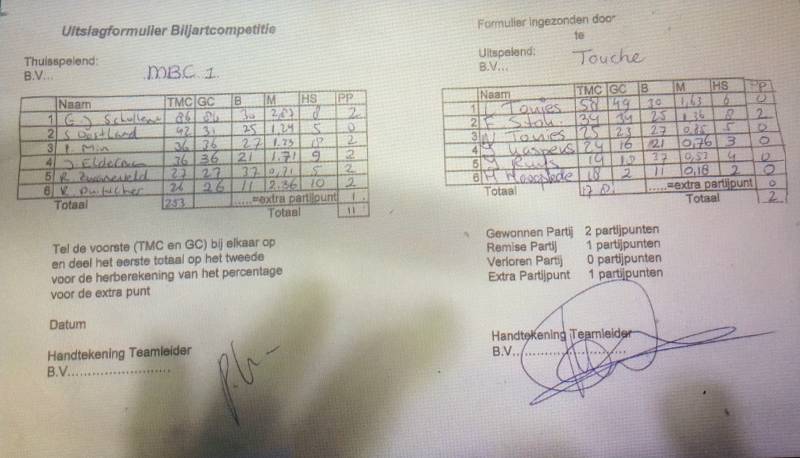 Uitslagformulier Biljartcompetitie
Thuisspelend:
B.V... MBC 1
Naam TMC GC B M HS PP
1 G.J 86 86 30 2,87 8 2
2 S Oostland 42 31 25 1,24 5 0
3 P. Min 36 36 27 1.33 2
4 J. Elderman 36 36 21 1.71 9 2
5 R. Zwaneveld 27 27 37 0,71 5 2
6 R. 26 26 11 2.36 10 2
Totaal 253 .....=extra partijpunt 1
Totaal 11
Tel de voorste (TMC en GC) bij elkaar op
en deel het eerste totaal op het tweede
voor de herberekening van het percentage
voor de extra punt
Datum
Handtekening Teamleider
B.V.........................
Formulier ingezonden door
te
Uitspelend:
B.V... Touche
Naam TMC GC B M HS PP
1 Tonies 58 49 30 1,63 6 0
2 F Stok. 34 34 25 1.36 8 2
3 N Tonies 25 23 27 0,85 5 0
4 Kaspers 24 16 21 0,76 3 0
5 19 37 0,53 4 0
6 18 2 11 0,18 2 0
Totaal .....=extra partijpunt 0
Totaal 2
Gewonnen Partij 2 partijpunten
Remise Partij 1 partijpunten
Verloren Partij 0 partijpunten
Extra Partijpunt 1 partijpunten
Handtekening Teamleider
B.V.........................